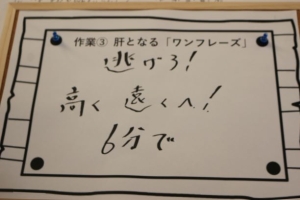 作業③ 肝となる「ワンフレーズ」
逃げろ!
高く 遠くへ!
6分で